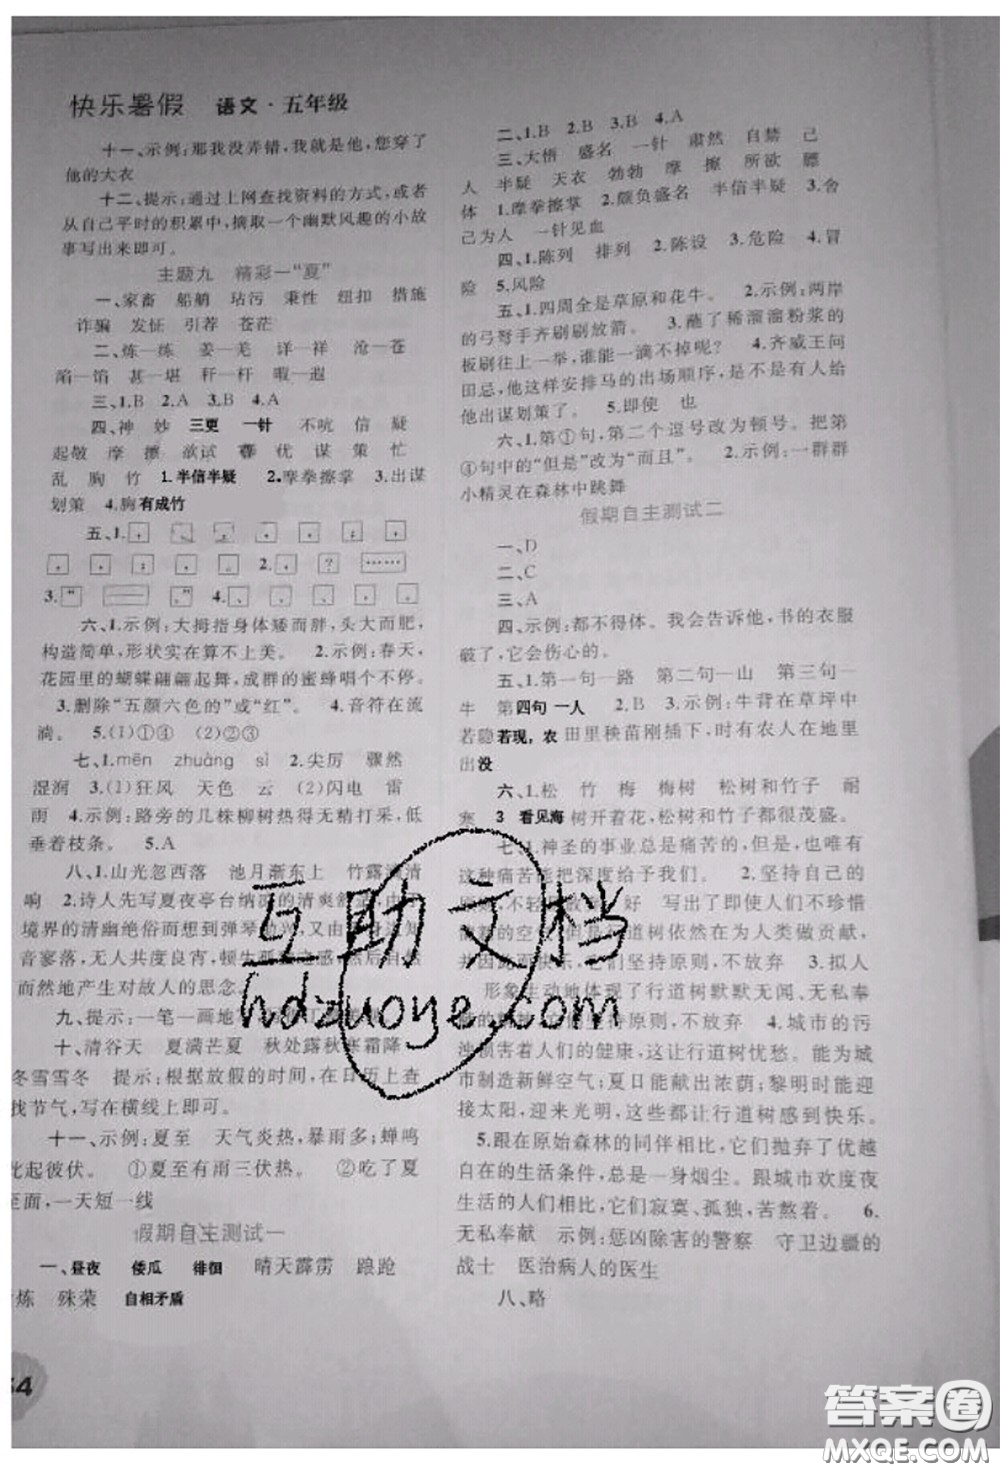 快乐暑假 语文·五年级
十一、示例:那我没弄错,我就是他,您穿了
他的大衣
十二、提示:通过上网查找资料的方式,或者
从自己平时的积累中,摘取一个幽默风趣的小故
事写出来即可。
主题九 精彩一“夏”
一、家畜 船艄 玷污 秉性 纽扣 措施
诈骗 发怔 引荐 苍茫
二、炼—练 姜—羌 详—祥 沧—苍
陷—馅 甚—堪 秆—杆 暇—遐
三、1.B 2.A 3.B 4.A
四、神 妙 三更 一针 不吭 信 疑
起敬 摩 擦 欲试 忧 谋 策 忙
乱 胸 竹 1.半信半疑 2.摩拳擦掌 3.出谋
划策 4.胸有成竹
五、1. , , , 。
, , , 。 2. , ? ……
3. “ —— 。” 4. 、 、 , 。
六、1.示例:大拇指身体矮而胖,头大而肥,
构造简单,形状实在算不上美。 2.示例:春天,
花园里的蝴蝶翩翩起舞,成群的蜜蜂唱个不停。
3.删除“五颜六色的”或“红”。 4.音符在流
淌。 5.(1)①④ (2)②③
七、1.mēn zhuàng sì 2.尖厉 骤然
湿润 3.(1)狂风 天色 云 (2)闪电 雷
雨 4.示例:路旁的几株柳树热得无精打采,低
垂着枝条。 5.A
八、1.山光忽西落 池月渐东上 竹露滴清
响 2.诗人先写夏夜亭台纳凉的清爽舒适,由
境界的清幽绝俗而想到弹琴助兴,又由
音寥落,无人共度良宵,顿生 感,然后自
而然地产生对故人的思念。
九、提示:一笔一画地
十、清谷天 夏满芒夏 秋处露秋寒霜降
冬雪雪冬 提示:根据放假的时间,在日历上查
找节气,写在横线上即可。
十一、示例:夏至 天气炎热,暴雨多;蝉鸣
此起彼伏。 ①夏至有雨三伏热。 ②吃了夏
至面,一天短一线
假期自主测试一
一、昼夜 倭瓜 徘徊 晴天霹雳 踉跄
炼 殊荣 自相矛盾
54
二、1.B 2.B 3.B 4.A
三、大悟 盛名 一针 肃然 自禁 己
人 半疑 天衣 勃勃 摩 擦 所欲 膘
体 1.摩拳擦掌 2.颇负盛名 半信半疑 3.舍
己为人 一针见血
四、1.陈列 排列 2.陈设 3.危险 4.冒
险 5.风险
五、1.四周全是草原和花牛。 2.示例:两岸
的弓弩手齐刷刷放箭。 3.蘸了稀溜溜粉浆的
板刷往上一举,谁能一滴不掉呢? 4.齐威王问
田忌,他这样安排马的出场顺序,是不是有人给
他出谋划策了。 5.即使 也
六、1.第①句,第二个逗号改为顿号。把第
④句中的“但是”改为“而且”。 2.示例:一群群
小精灵在森林中跳舞
假期自主测试二
一、D
二、C
三、A
四、示例:都不得体。我会告诉他,书的衣服
破了,它会伤心的。
五、1.第一句—路 第二句—山 第三句—
牛 第四句—人 2.B 3.示例:牛背在草坪中
若隐若现,农田里秧苗刚插下,时有农人在地里
出没
六、1.松 竹 梅 梅树 松树和竹子 耐
寒 3 看见海树开着花,松树和竹子都很茂盛。
七、1.神圣的事业总是痛苦的,但是,也唯有
这种痛苦能把深度给予我们。 2.坚持自己的
原则,不轻 放弃 好 写出了即使人们不珍惜
新的空气,但行道树依然在为人类做贡献,
并因此而快乐,它们坚持原则,不放弃 3.拟人
形象生动地体现了行道树默默无闻、无私奉
献的 它们坚持原则,不放弃 4.城市的污
浊损害着人们的健康,这让行道树忧愁。能为城
市制造新鲜空气;夏日能献出浓荫;黎明时能迎
接太阳,迎来光明,这些都让行道树感到快乐。
5.跟在原始森林的同伴相比,它们抛弃了优越
自在的生活条件,总是一身烟尘。跟城市欢度夜
生活的人们相比,它们寂寞,孤独,苦熬着。 6.
无私奉献 示例:惩凶除害的警察 守卫边疆的
战士 医治病人的医生
八、略
互助文档
hdzuoye.com
答案圈
MXQE.COM